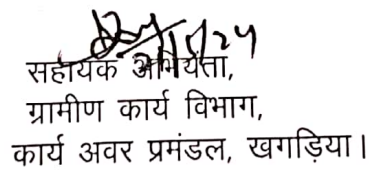 सहायक अभियंता,
ग्रामीण कार्य विभाग,
कार्य अवर प्रमंडल, खगड़िया।